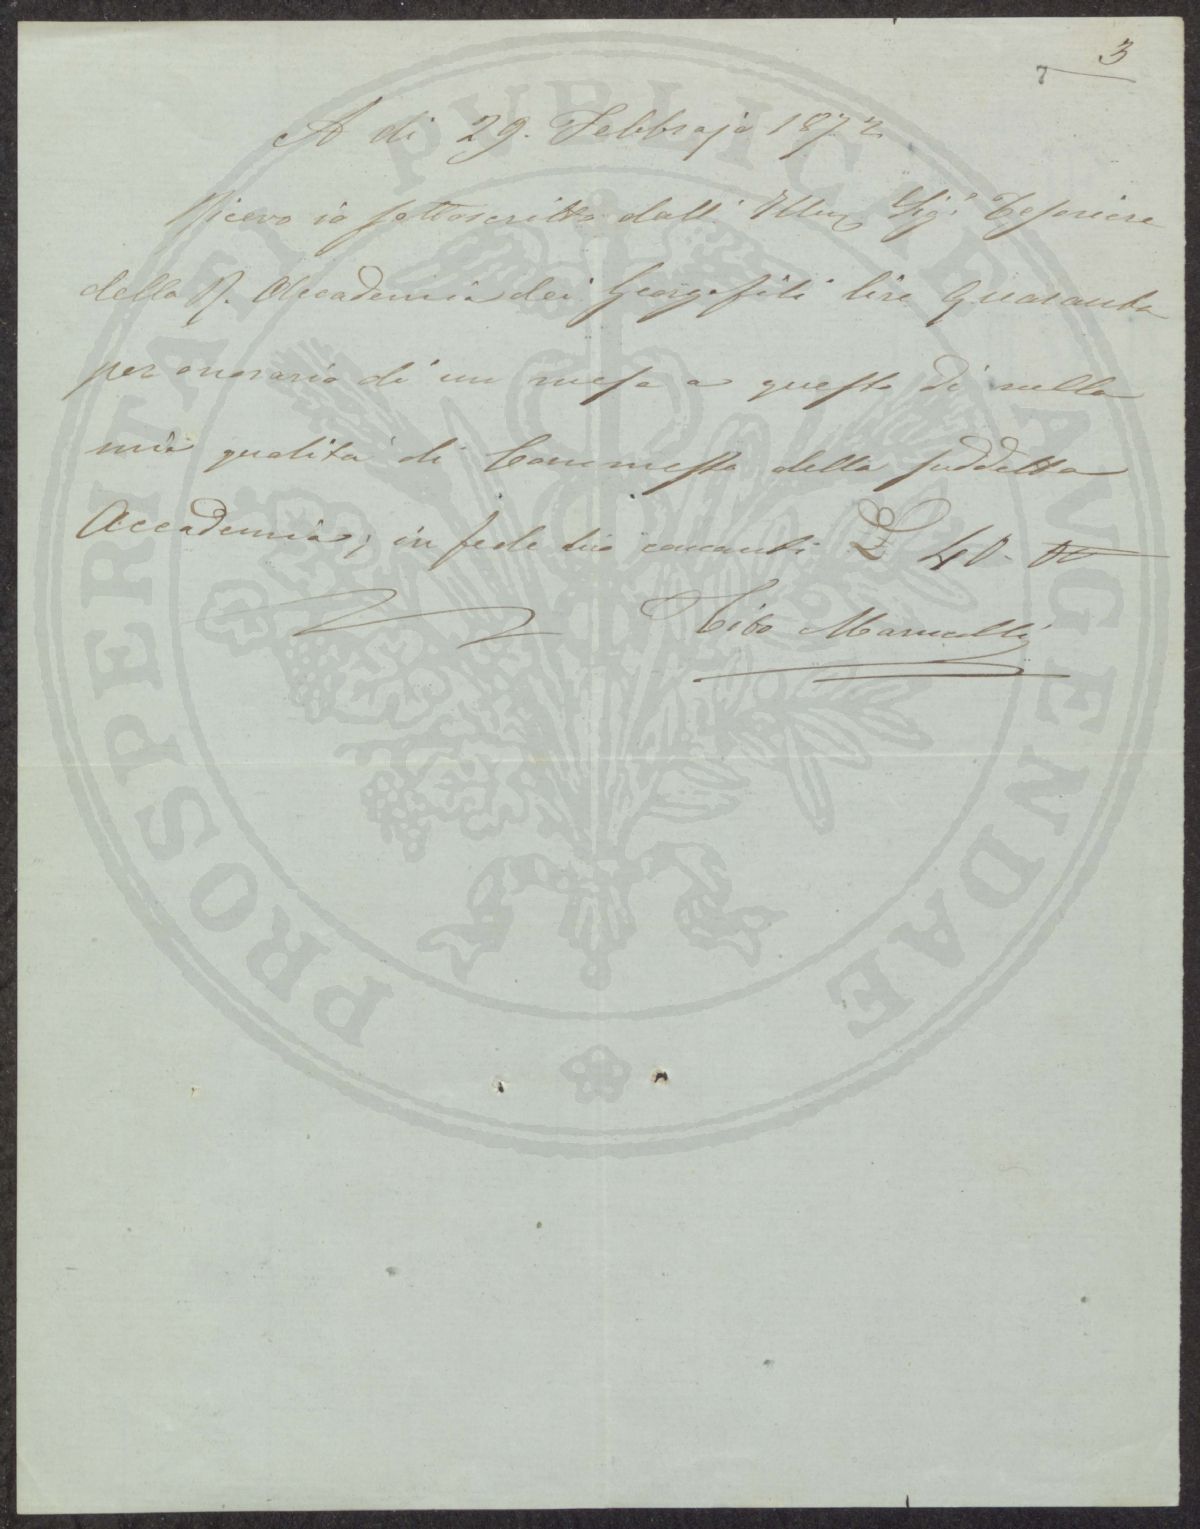 3
7
A di 29. Febbrajo 1872
Ricevo io sottoscritto dall' Illmo Sigr Tesoriere
della R. Accademia dei Georgofili lire Quaranta
per onorario di un mese a questo dì nella
mia qualità di Commesso della suddetta
Accademia; in fede mio contanti £ 40 -
Tito Marucelli
PROSPERITATI PVBLICAE AVGENDAE